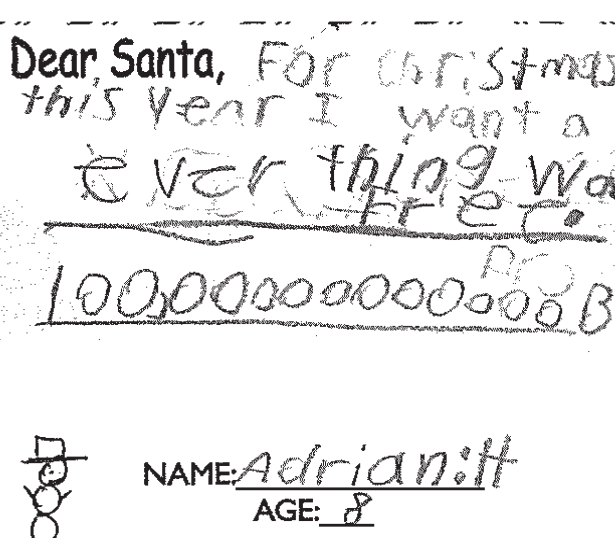 Dear Santa, For christmas
this year I want a
ever thing wa
free.
100,000000000000B
NAME: Adrian:H
AGE: 8